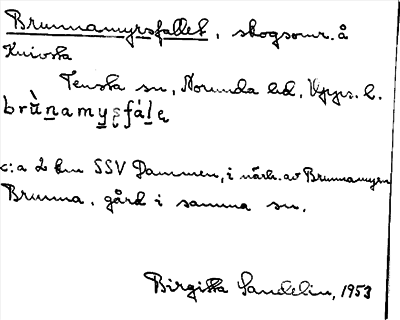 Brunnamyrsfallet, skogsomr. å
Knivsta
Tensta sn, Norunda hd, Upps. l.
c:a 2 km SSV Dammen, i närh. av Brunnamyren
Brunna, gård i samma sn.
Birgitta Sandelin, 1953